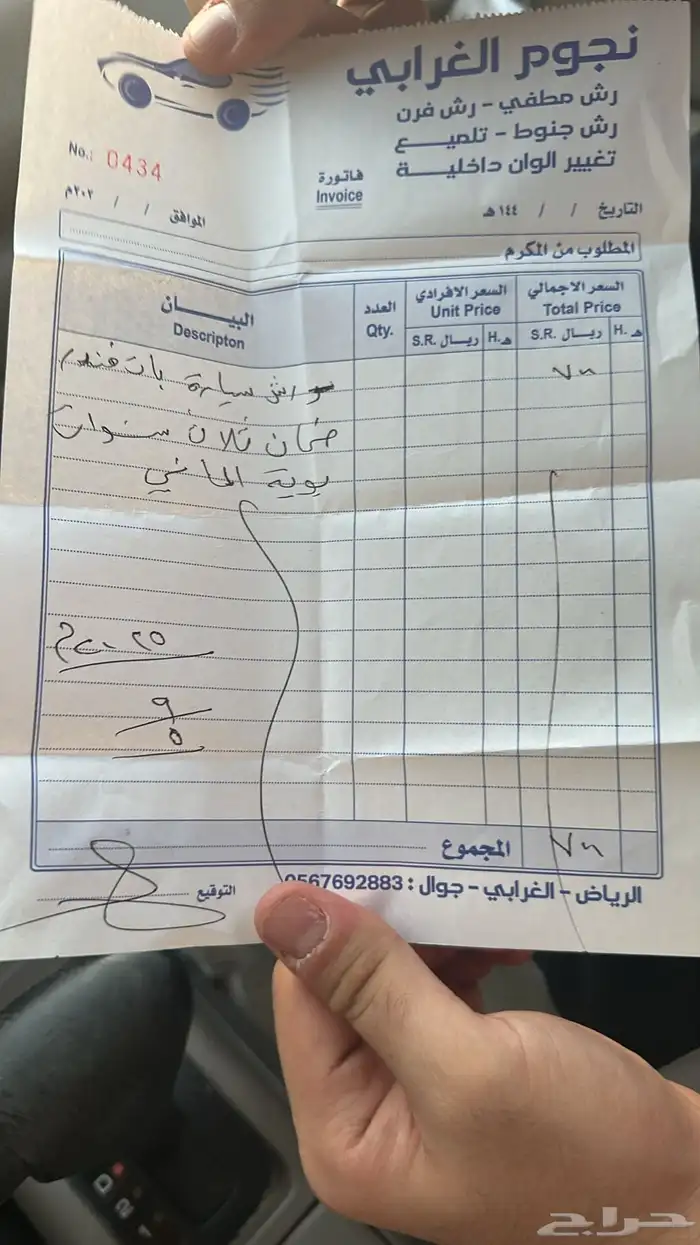 نجوم الغرابي
رش مطفي - رش فرن
رش جنوط - تلميع
تغيير الوان داخلية
No.: 0434
فاتورة
Invoice
التاريخ / / ١٤٤هـ
الموافق / / ٢٠٢م
المطلوب من المكرم
البيان
Descripton
العدد
Qty.
السعر الافرادي
Unit Price
S.R. ريال
H. هـ
السعر الاجمالي
Total Price
S.R. ريال
H. هـ
رش سيارة
ضمان ثلاث سنوات
بوية الماني
المجموع
التوقيع
الرياض - الغرابي - جوال : 0567692883
حراج